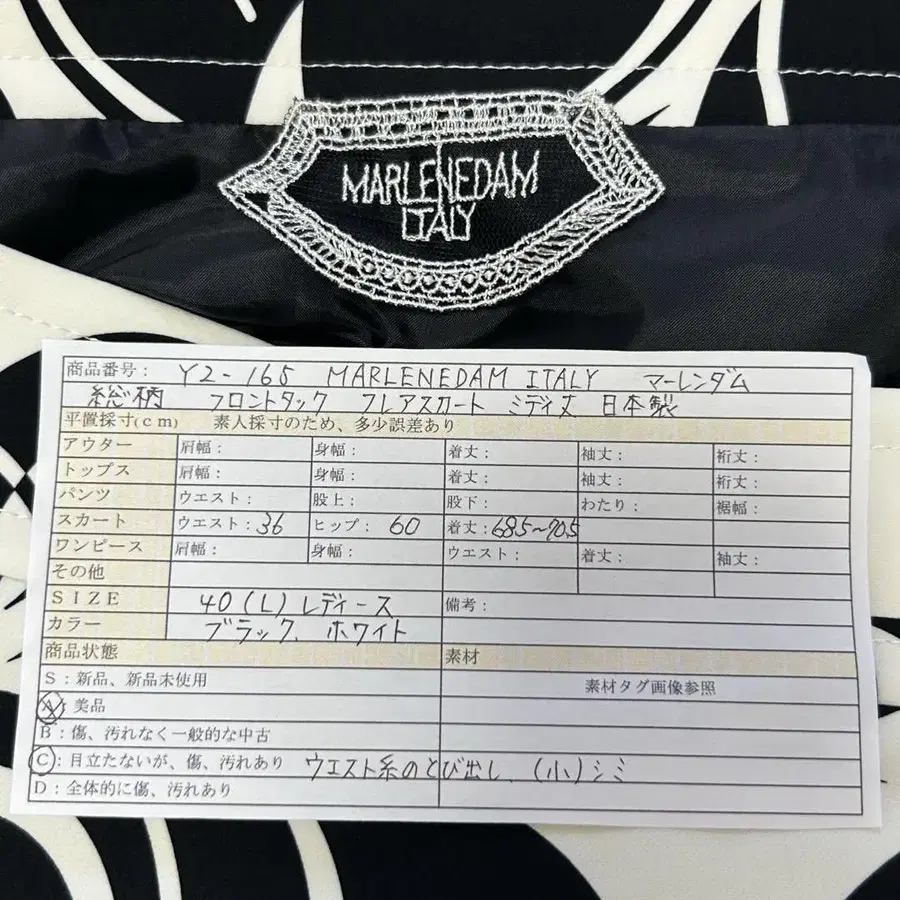 MARLENEDAM
ITALY
商品番号: Y2-165 MARLENEDAM ITALY マーレンダム
総柄 フロントタック フレアスカート ミディ丈 日本製
平置採寸(cm) 素人採寸のため、多少誤差あり
アウター 肩幅: 身幅: 着丈: 袖丈: 裄丈:
トップス 肩幅: 身幅: 着丈: 袖丈: 裄丈:
パンツ ウエスト: 股上: 股下: わたり: 裾幅:
スカート ウエスト: 36 ヒップ: 60 着丈: 68.5~70.5
ワンピース 肩幅: 身幅: ウエスト: 着丈: 袖丈:
その他
SIZE 40(L)レディース 備考:
カラー ブラック、ホワイト
商品状態 素材
S:新品、新品未使用 素材タグ画像参照
A:美品
B:傷、汚れなく一般的な中古
C:目立たないが、傷、汚れあり ウエスト糸のとび出し、(小)シミ
D:全体的に傷、汚れあり